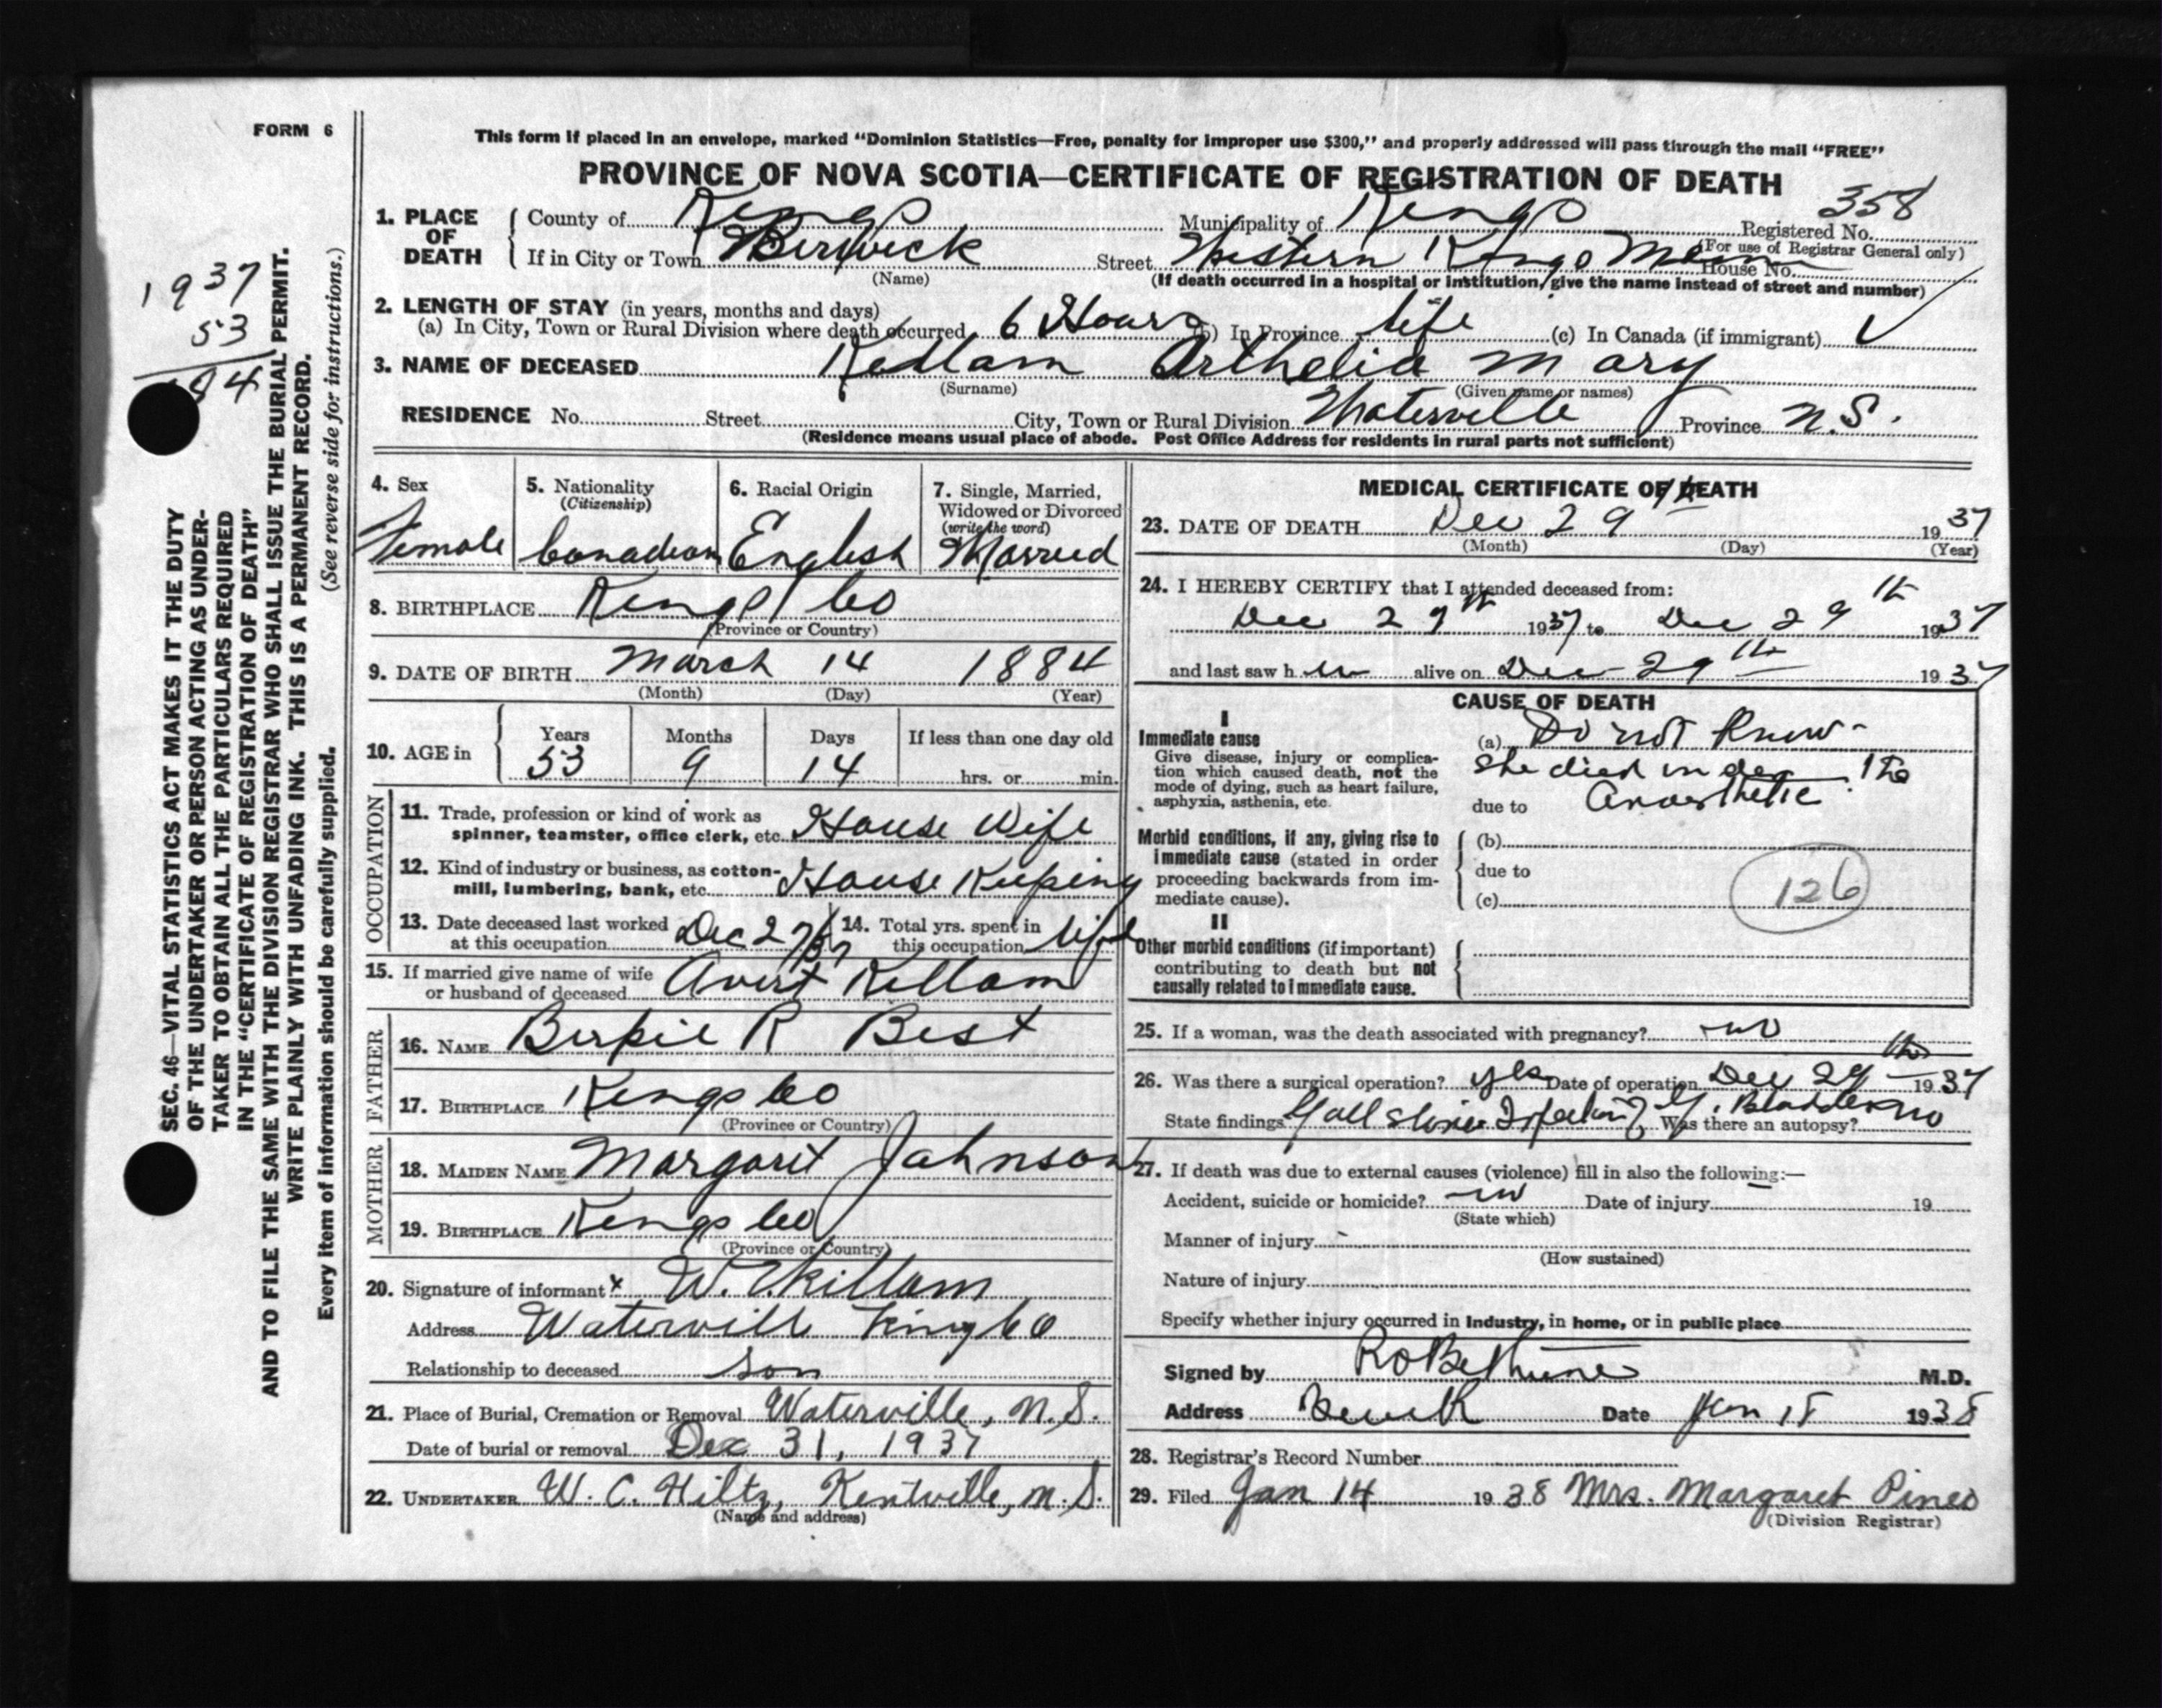 FORM 6
This form if placed in an envelope, marked “Dominion Statistics—Free, penalty for improper use $300,” and properly addressed will pass through the mail “FREE”
PROVINCE OF NOVA SCOTIA—CERTIFICATE OF REGISTRATION OF DEATH
358
1. PLACE OF DEATH
County of Kings Municipality of Kings Registered No.
(For use of Registrar General only)
If in City or Town Berwick Street Western Kings Mem House No.
(Name) (If death occurred in a hospital or institution, give the name instead of street and number)
2. LENGTH OF STAY (in years, months and days)
(a) In City, Town or Rural Division where death occurred 6 Hours (b) In Province life (c) In Canada (if immigrant) ✓
3. NAME OF DECEASED Kellam Arthelia Mary
(Surname) (Given name or names)
RESIDENCE No. Street City, Town or Rural Division Waterville Province N.S.
(Residence means usual place of abode. Post Office Address for residents in rural parts not sufficient)
1937
53
84
SEC. 46—VITAL STATISTICS ACT MAKES IT THE DUTY
OF THE UNDERTAKER OR PERSON ACTING AS UNDER-
TAKER TO OBTAIN ALL THE PARTICULARS REQUIRED
IN THE “CERTIFICATE OF REGISTRATION OF DEATH”
AND TO FILE THE SAME WITH THE DIVISION REGISTRAR WHO SHALL ISSUE THE BURIAL PERMIT.
WRITE PLAINLY WITH UNFADING INK. THIS IS A PERMANENT RECORD.
Every item of information should be carefully supplied. (See reverse side for instructions.)
4. Sex
Female
5. Nationality
(Citizenship)
Canadian
6. Racial Origin
English
7. Single, Married,
Widowed or Divorced
(write the word)
Married
8. BIRTHPLACE Kings Co
(Province or Country)
9. DATE OF BIRTH March 14 1884
(Month) (Day) (Year)
10. AGE in
Years Months Days If less than one day old
53 9 14 hrs. or min.
OCCUPATION
11. Trade, profession or kind of work as
spinner, teamster, office clerk, etc. House Wife
12. Kind of industry or business, as cotton-
mill, lumbering, bank, etc. House Keeping
13. Date deceased last worked
at this occupation Dec 27/37
14. Total yrs. spent in
this occupation life
15. If married give name of wife
or husband of deceased Avert Kellam
FATHER
16. NAME Burpie R Best
17. BIRTHPLACE Kings Co
(Province or Country)
MOTHER
18. MAIDEN NAME Margaret Jahnson
19. BIRTHPLACE Kings Co
(Province or Country)
20. Signature of informant x W. E. Killam
Address Waterville Kings Co
Relationship to deceased Son
21. Place of Burial, Cremation or Removal Waterville, N.S.
Date of burial or removal Dec 31, 1937
22. UNDERTAKER W. C. Hiltz, Kentville, N.S.
(Name and address)
MEDICAL CERTIFICATE OF DEATH
23. DATE OF DEATH Dec 29th 1937
(Month) (Day) (Year)
24. I HEREBY CERTIFY that I attended deceased from:
Dec 29th 1937 to Dec 29th 1937
and last saw her alive on Dec 29th 1937
CAUSE OF DEATH
I
Immediate cause
Give disease, injury or complica-
tion which caused death, not the
mode of dying, such as heart failure,
asphyxia, asthenia, etc.
(a) Do not know -
she died under the
due to Anaesthetic
Morbid conditions, if any, giving rise to
immediate cause (stated in order
proceeding backwards from im-
mediate cause).
(b)
due to
(c)
126
II
Other morbid conditions (if important)
contributing to death but not
causally related to immediate cause.
25. If a woman, was the death associated with pregnancy? no
26. Was there a surgical operation? yes Date of operation Dec 29th 1937
State findings Gall stones Infection of G. Bladder Was there an autopsy? no
27. If death was due to external causes (violence) fill in also the following:—
Accident, suicide or homicide? no Date of injury 19
(State which)
Manner of injury
(How sustained)
Nature of injury
Specify whether injury occurred in industry, in home, or in public place
Signed by R O Bethune M.D.
Address Date Jan 15 1938
28. Registrar's Record Number
29. Filed Jan 14 1938 Mrs. Margaret Pineo
(Division Registrar)